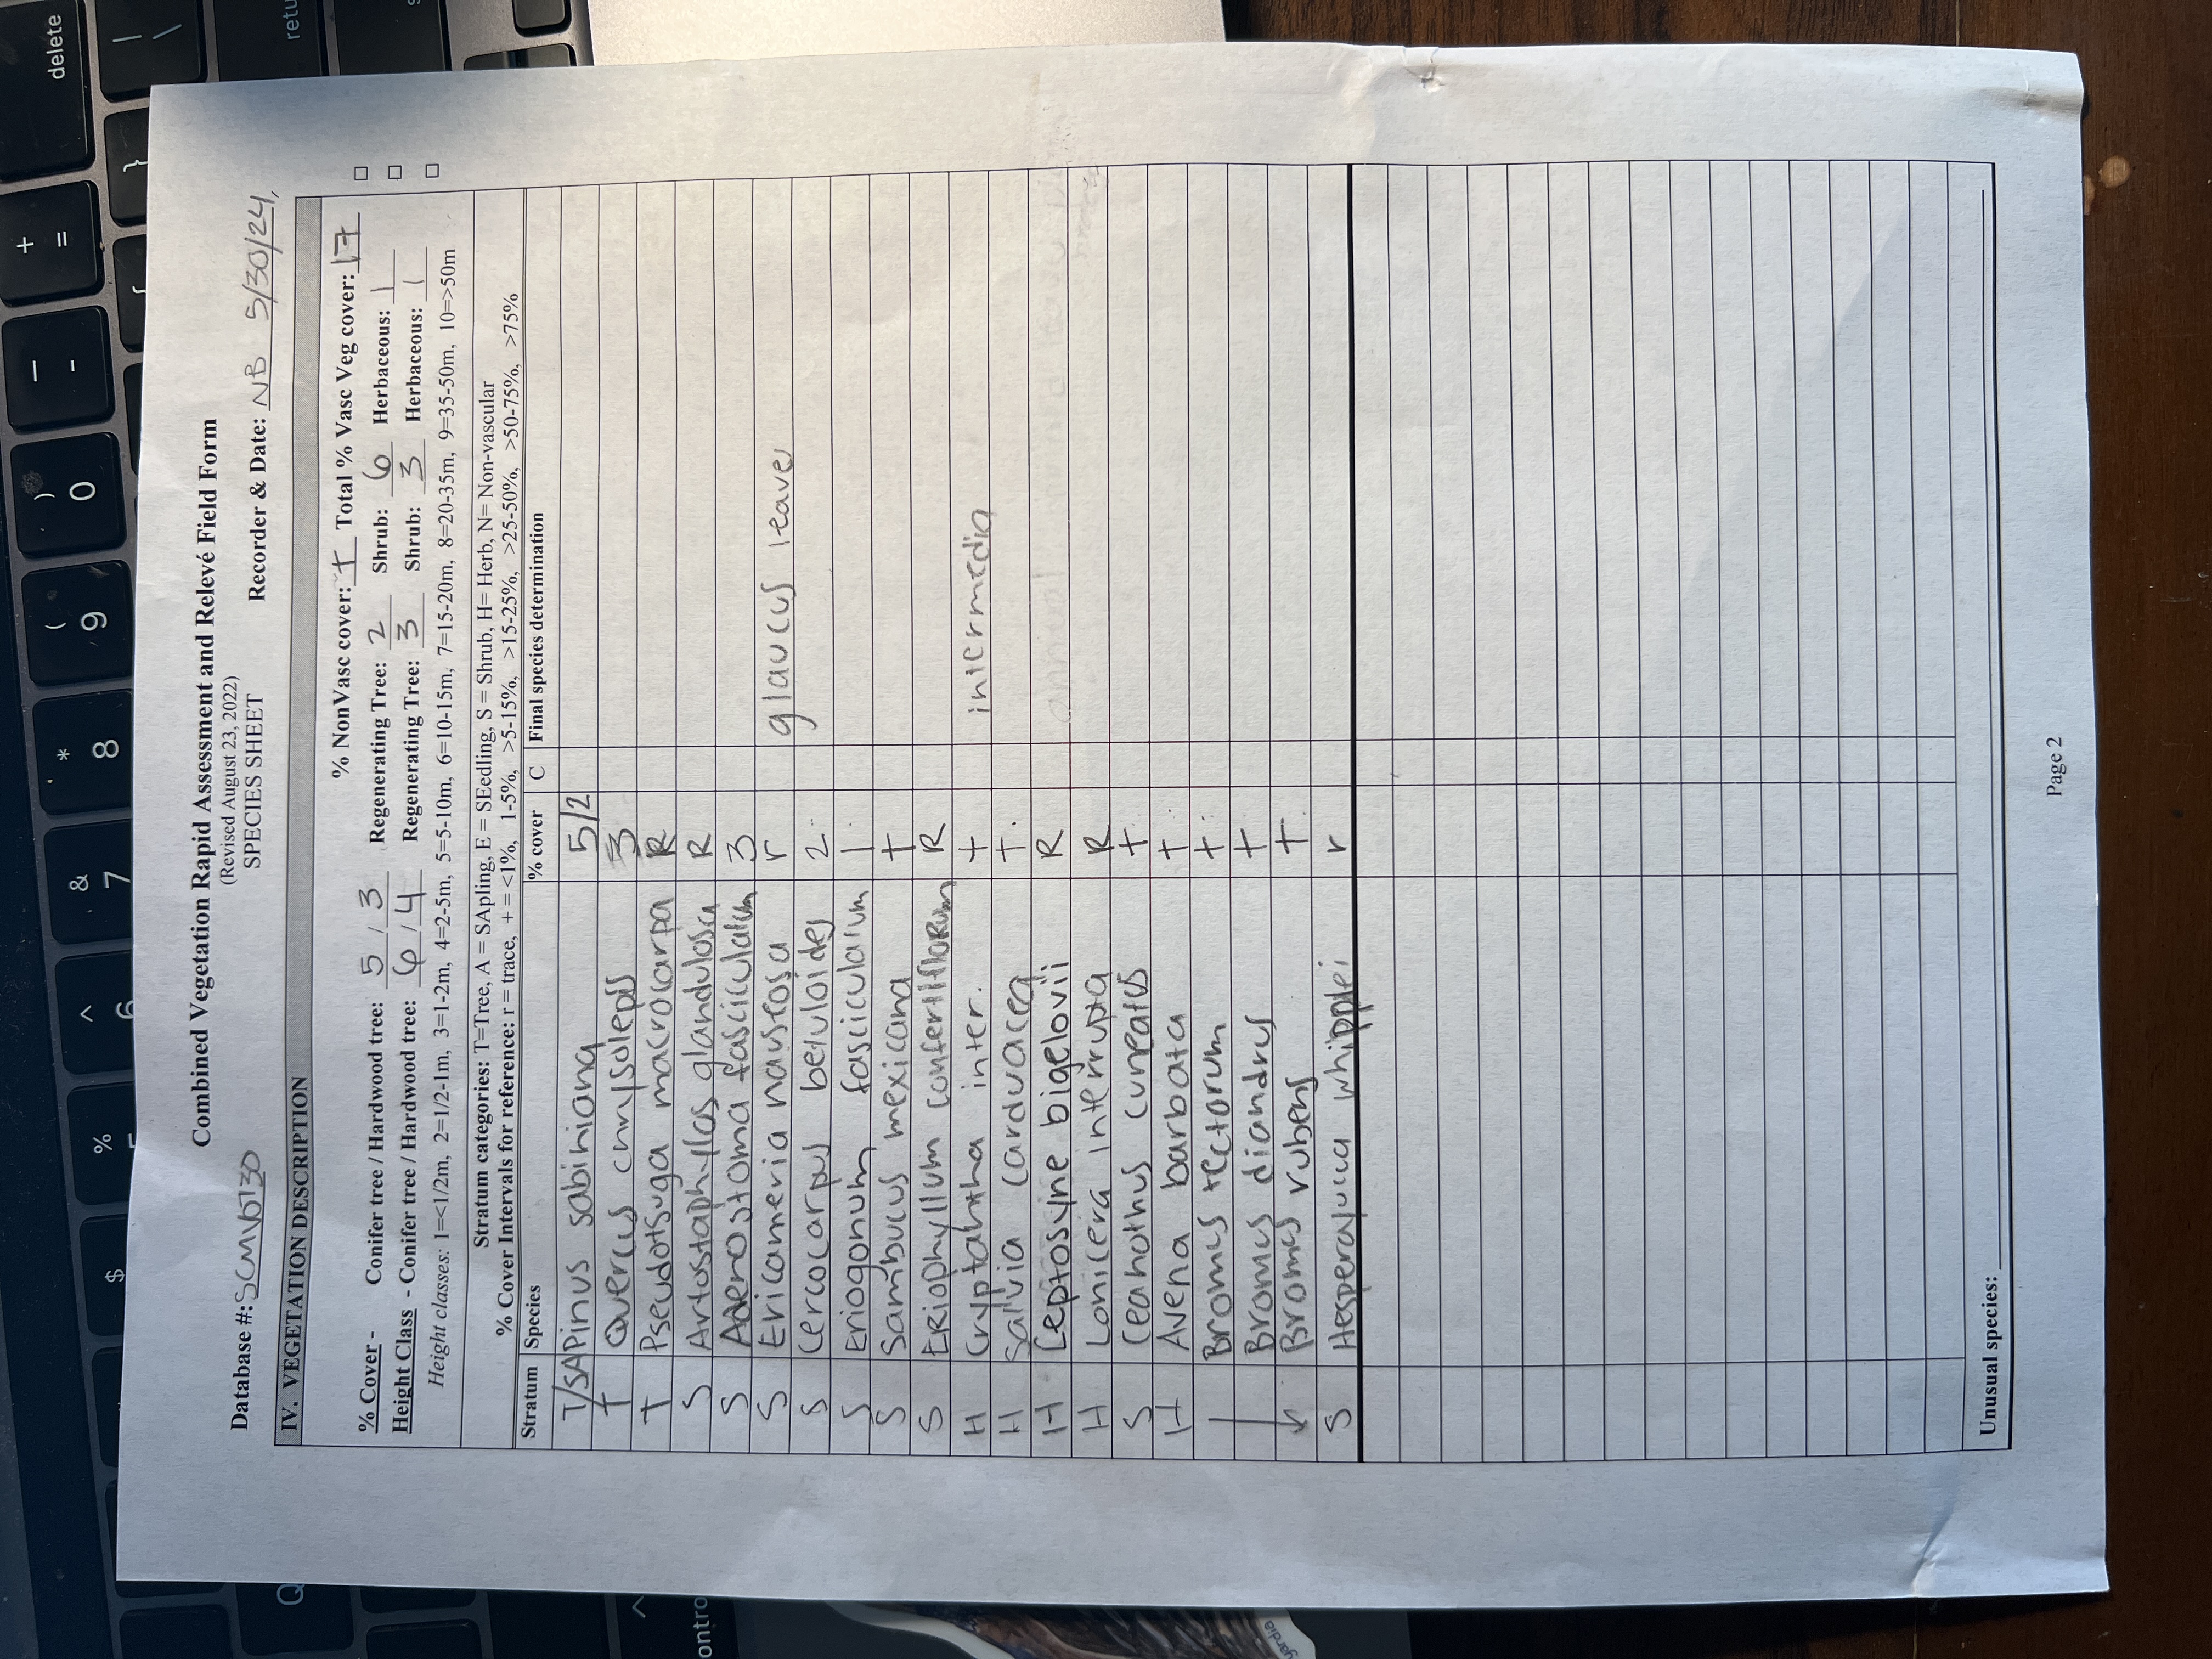 Combined Vegetation Rapid Assessment and Relevé Field Form
(Revised August 23, 2022)
SPECIES SHEET
Database #: Recorder & Date: NB 5/30/24
IV. VEGETATION DESCRIPTION
% NonVasc cover: + Total % Vasc Veg cover: 17
% Cover - Conifer tree / Hardwood tree: 5 / 3 Regenerating Tree: 2 Shrub: 6 Herbaceous: 1
Height Class - Conifer tree / Hardwood tree: 6 / 4 Regenerating Tree: 3 Shrub: 3 Herbaceous: 1
Height classes: 1=<1/2m, 2=1/2-1m, 3=1-2m, 4=2-5m, 5=5-10m, 6=10-15m, 7=15-20m, 8=20-35m, 9=35-50m, 10=>50m
Stratum categories: T=Tree, A = SApling, E = SEedling, S = Shrub, H= Herb, N= Non-vascular
% Cover Intervals for reference: r = trace, + = <1%, 1-5%, >5-15%, >15-25%, >25-50%, >50-75%, >75%
Stratum Species % cover C Final species determination
T/SA Pinus sabiniana 5/2
T Quercus chrysoleps 3
T Pseudotsuga macrocarpa R
S Arctostaphylos glandulosa R
S Adenostoma fasciculatum 3
S Ericameria nauseosa r glaucus leave
S Cercocarpus betuloides 2
S Eriogonum fasciculatum 1
S Sambucus mexicana +
S Eriophyllum confertiflorum R
H Cryptahtha inter. + intermedia
H Salvia carduacea +
H Leptosyne bigelovii R
H Lonicera interrupta R
S Ceahothus cuneatus +
H Avena barbata +
Bromus tectorum +
Bromus diandrus +
Bromus rubens +
S Hesperoyucca whipplei r
Unusual species:
Page 2
delete
retu
+
=
—
-
)
0
(
9
*
8
&
7
^
6
%
5
$
Q
ontro